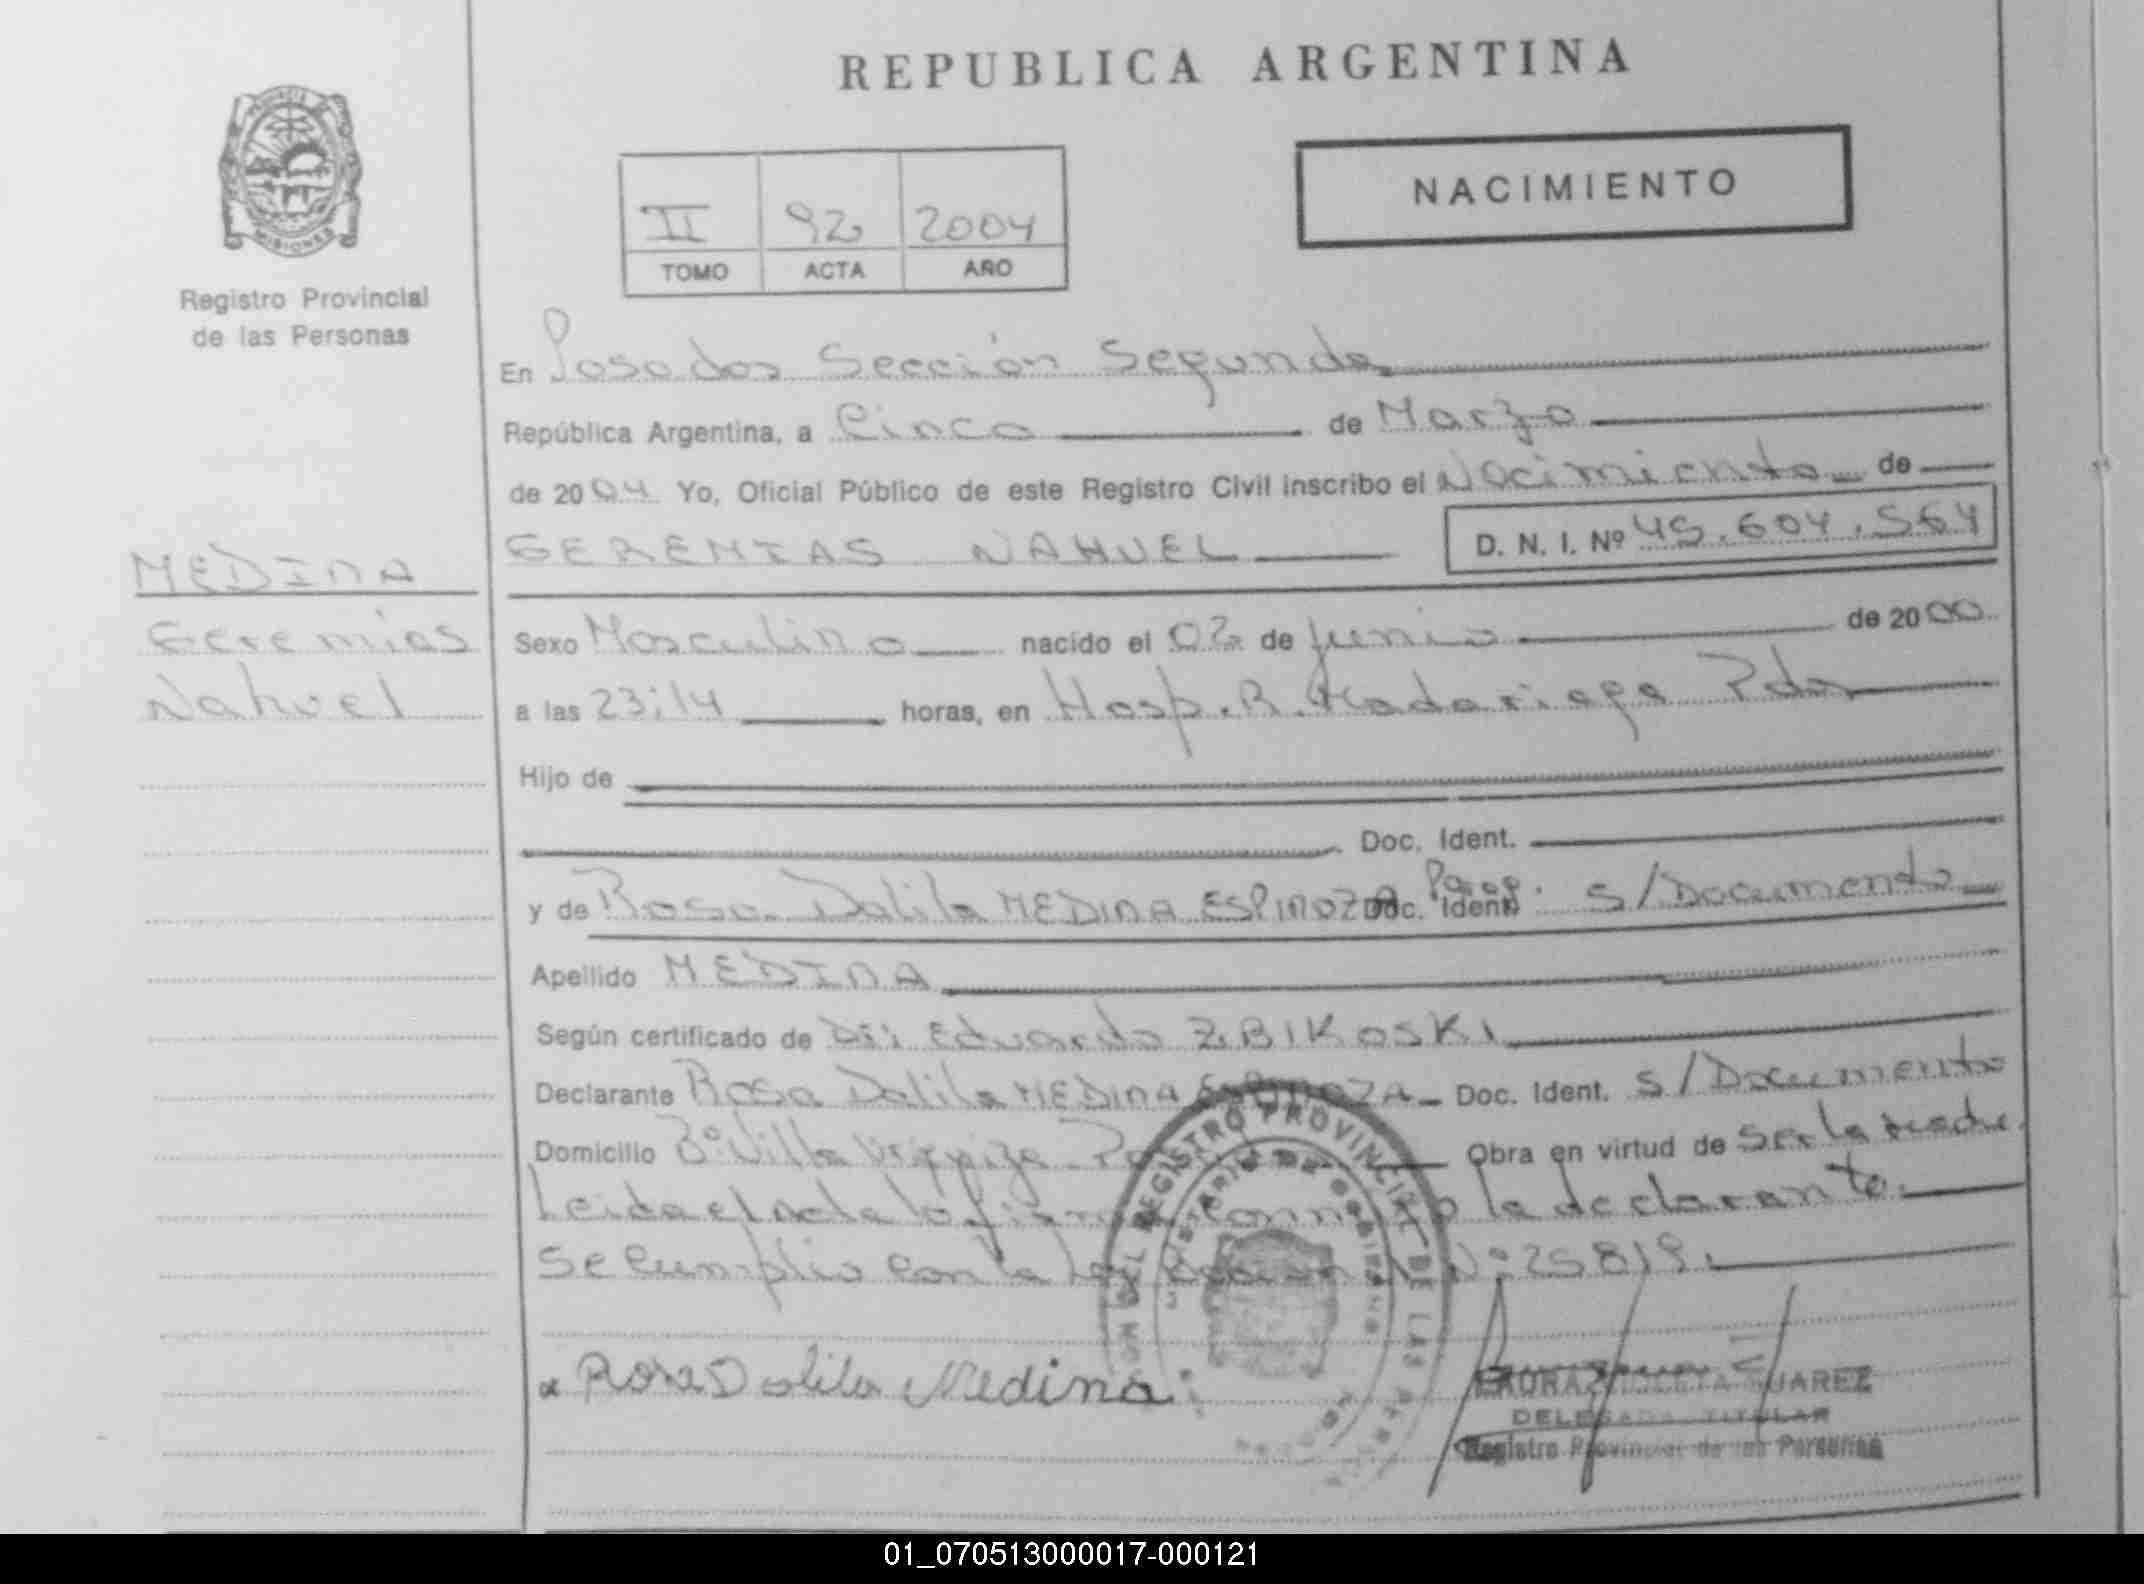 REPUBLICA ARGENTINA
NACIMIENTO
II 92 2004
TOMO ACTA AÑO
PROVINCIA DE
MISIONES
Registro Provincial
de las Personas
En Posadas Sección Segunda
República Argentina, a Cinco de Marzo
de 2004 Yo, Oficial Público de este Registro Civil inscribo el Nacimiento de
GEREMIAS NAHUEL D. N. I. Nº 45.604.564
MEDINA
Geremias
Nahuel
Sexo Masculino nacido el 02 de Junio de 2000
a las 23:14 horas, en Hosp. R. Madariaga Pdas
Hijo de
Doc. Ident.
y de Rosa Dalila MEDINA ESPINOZA Doc. Ident. Parag. S/Documento
Apellido MEDINA
Según certificado de Dr: Eduardo ZBIKOSKI
Declarante Rosa Dalila MEDINA ESPINOZA Doc. Ident. S/Documento
Domicilio Bº Villa Urquiza Obra en virtud de ser la madre.
Leida el Acta la firma conmigo la declarante.
Se Cumplio con la Ley Nº 25819.
REGISTRO PROVINCIAL DE LAS
MINISTERIO DE GOBIERNO
Rosa Dalila Medina
SUAREZ
DELEGADA TITULAR
Registro Provincial de las Personas
01_070513000017-000121